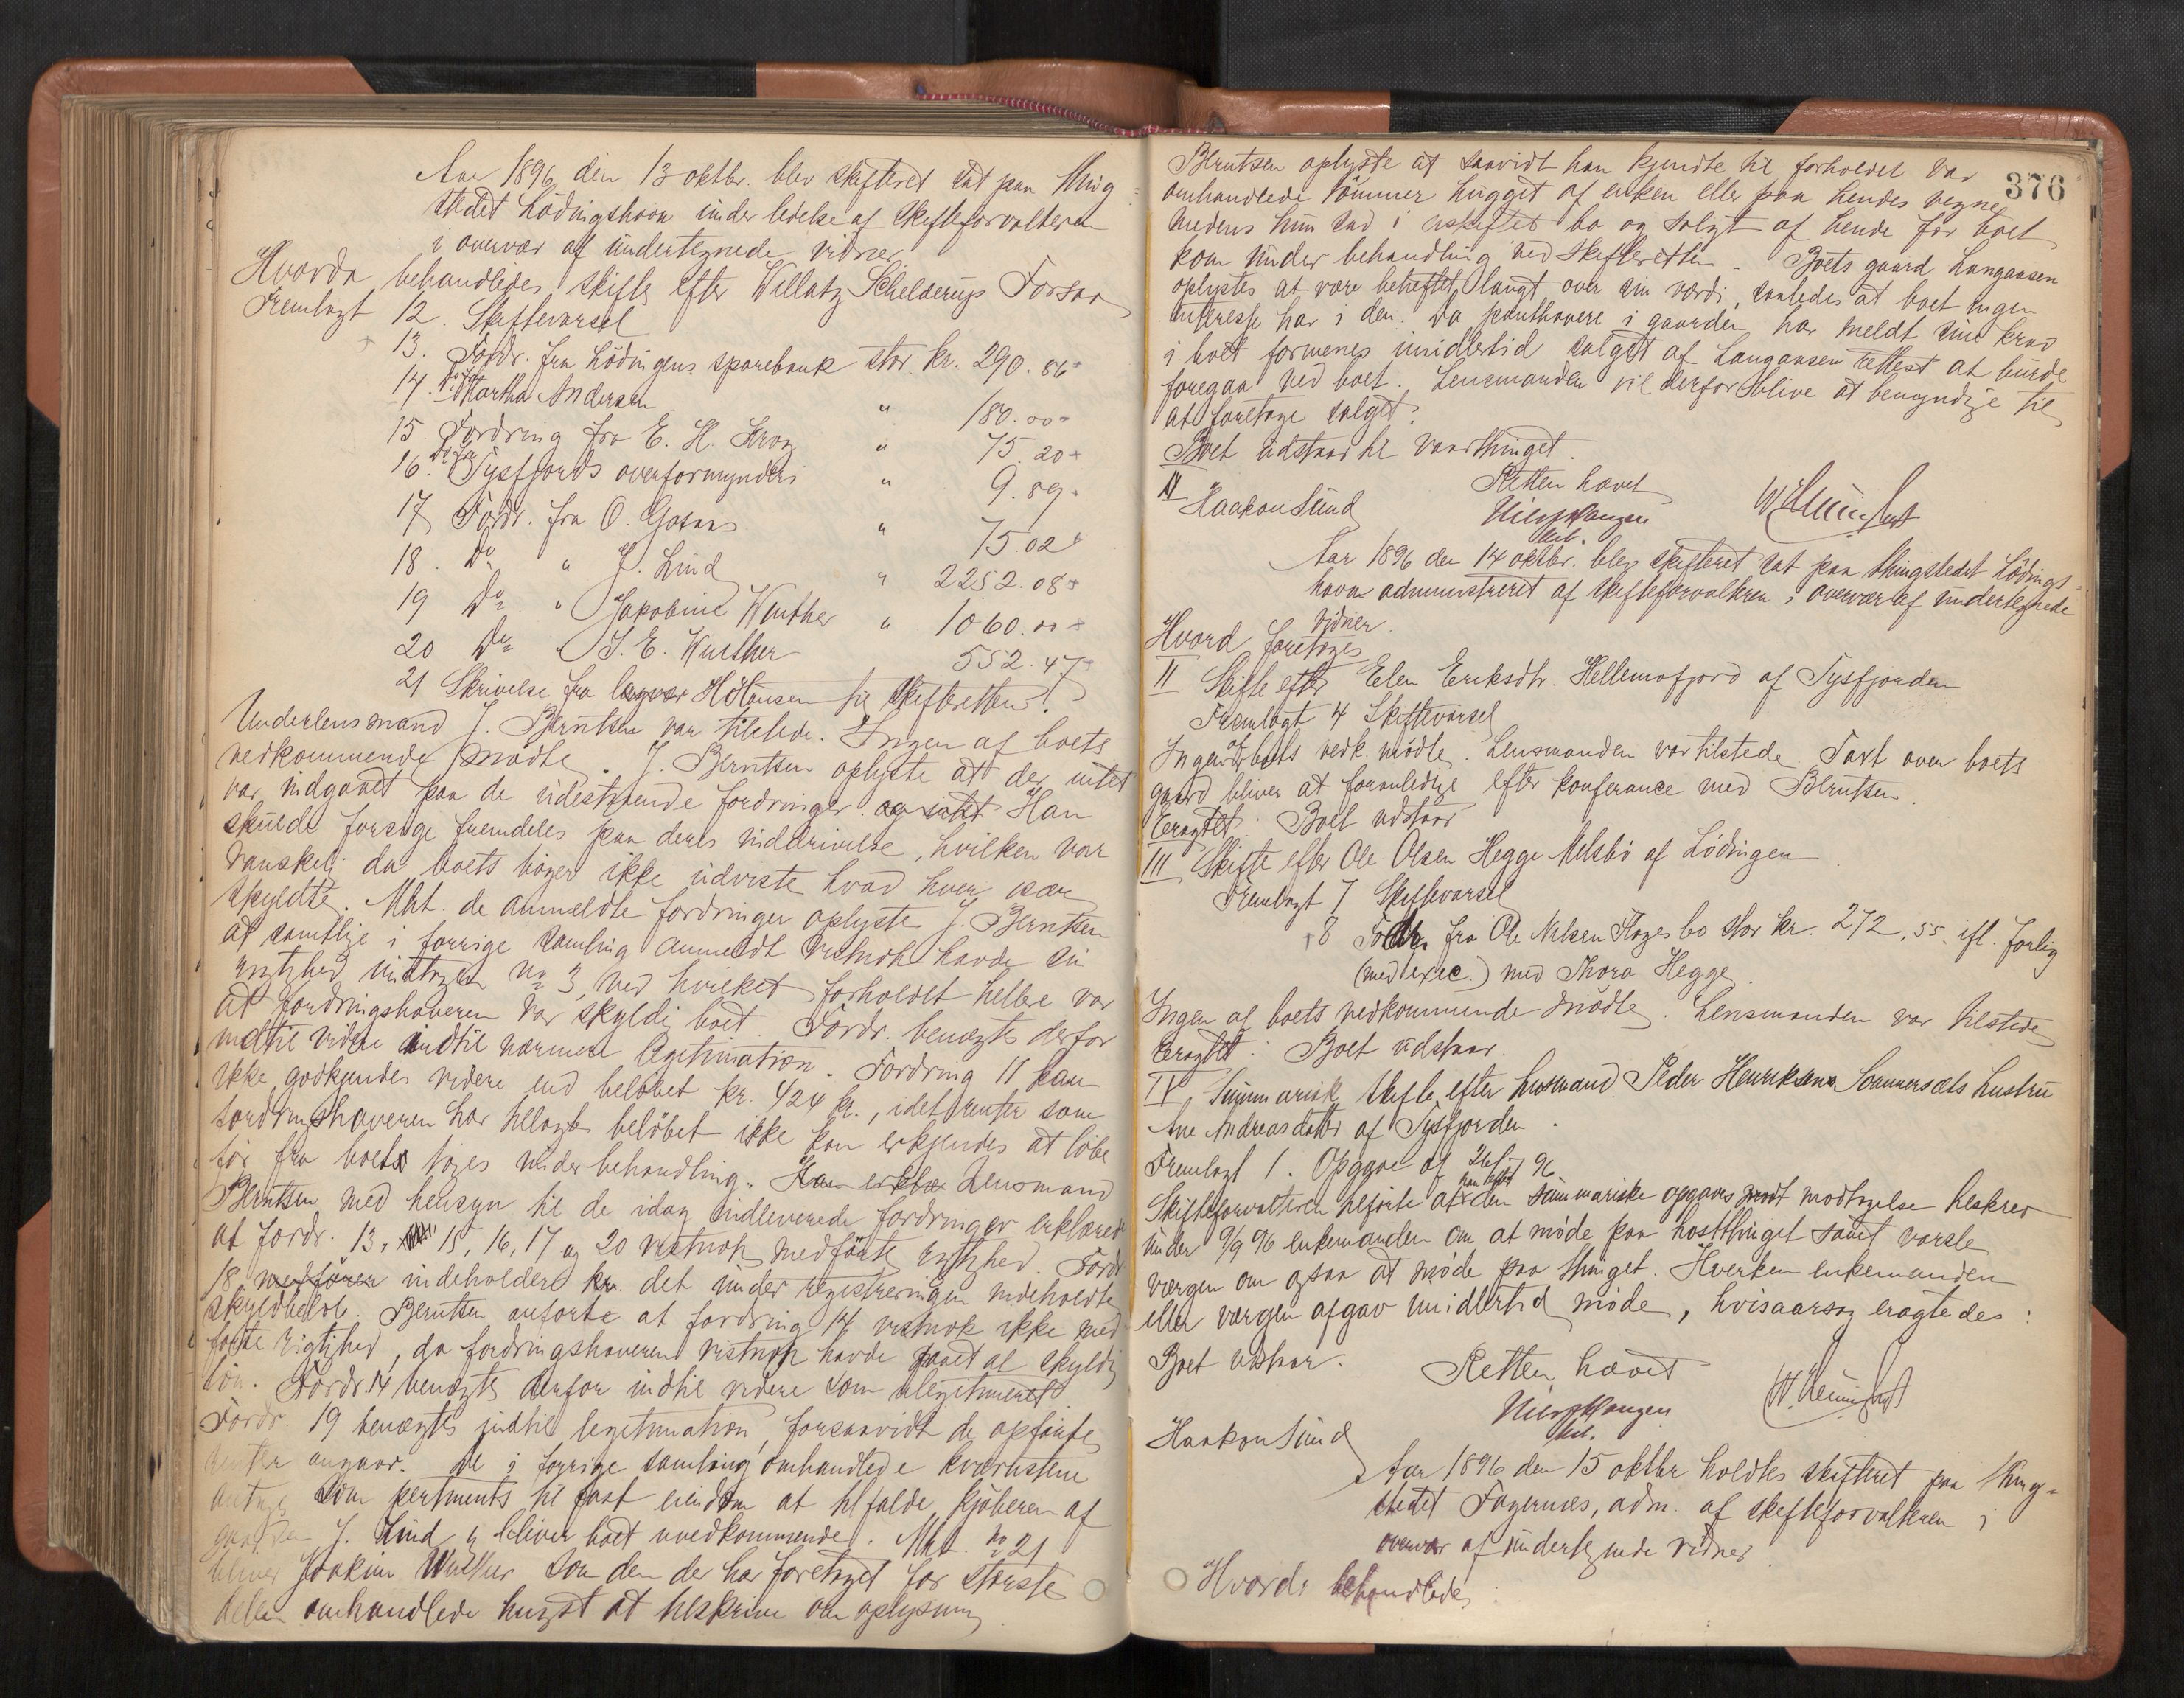 Aar 1896 den 13 oktbr. blev skifteret sat paa thing
stedet Lödingshavn under ledelse af skifteforvalteren
i overvær af undertegnede vidner
Hvorda behandledes skifte efter Willatz Schelderup Forsaa
Fremlagt 12. Skiftevarsel
13. Fordr. fra Lödingens sparebank stor kr. 290.86
14. Do fra Martha Andersen " 180.00
15 Fordring fra E. H. Krog " 75.20
16. Do fra Tysfjords overformynderi " 9.89
17 Fordr. fra O. Gosaas " 75.02
18. Do " J. Lind " 2252.08
19 Do " Jakobine Wulther " 1060.00
20 Do " J. E. Wulther 552.47
21 Skrivelse fra Høtansen til skifteretten.
Underlensmand J. Berntsen var tilstede. Ingen af boets
vedkommende mødte. J. Berntsen oplyste at der intet
var indgaaet paa de udestaaende fordringer. og intet Han
skulde forsøge fremdeles paa deres inddrivelse, hvilken var
vanskelig da boets bøger ikke udviste hvad hver især
skyldte. Mht. de anmeldte fordringer oplyste J. Berntsen
at samtlige i forrige samling anmeldt vistnok havde sin
rigtighed undtagen No 3, ved hvilket forholdet heller var
at fordringshaveren var skyldig boet. Fordr. benægtes derfor
indtil videre indtil nærmere legitimation. Fordring 11 kan
ikke godkjendes videre end beløbet kr. 424 kr., idet renter som
fordringshaveren har tillagt beløbet ikke kan erkjendes at løbe
før fra boets tages under behandling. Han erklær Lensmand
Berntsen med hensyn til de idag indleverede fordringer erklærede
at fordr. 13, 15, 16, 17 og 20 vistnok medførte rigtighed. Fordr
18 medfører indeholder kr. det under registreringen indeholdte
skyldbeløb. Berntsen anførte at fordring 14 vistnok ikke med
førte rigtighed, da fordringshaveren vistnok havde faaet al skyldig
løn. Fordr. 14 benægtes derfor indtil videre som ulegitimeret.
Fordr. 19 benægtes indtil legitimation, forsaavidt de opførte
renter angaar. De i forrige samling omhandlede kværnstene
antages som pertinents til fast eiendom at tilfalde kjøberen af
gaarden J. Lind og bliver boet uvedkommende. Mht. No 21
bliver Joakim Wulther som den der har foretaget for største
delen omhandlede hugst at tilskrive om oplysning
376
Berntsen oplyste at saavidt han kjendte til forholdet var
omhandlede tømmer hugget af enken eller paa hendes vegne
medens hun sad i uskiftet bo og solgt af hende før boet
kom under behandling ved skifteretten. Boets gaard Langaasen
oplystes at være beheftet langt over sin værdi, saaledes at boet ingen
interesse har i den. Da panthavere i gaarden har meldt sine krav
i boet formenes imidlertid salget af Langaasen rettest at burde
foregaa ved boet. Lensmanden vil derfor blive at bemyndige til
at foretage salget.
Boet udstaar til vaarthinget.
Retten hævet
Haakon Sund
Aar 1896 den 14 oktbr. blev skifteret sat paa thingstedet Lödings-
havn administreret af skifteforvalteren i overvær af undertegnede
vidner.
Hvord foretages
II Skifte efter Elen Eriksdtr. Hellemofjord af Tysfjorden
Fremlagt 4 Skiftevarsel
Ingen af boets vedk. mødte. Lensmanden var tilstede. Taxt over boets
gaard bliver at foranledige efter konferance med Berntsen.
Eragtet: Boet udstaar
III Skifte efter Ole Olsen Hegge Melsbö af Lödingen.
Fremlagt 7 Skiftevarsel
8 Fordr. fra Ole Nilsen Hagesbo stor kr. 272,55. ifl. forlig
(med exec.) med Thora Hegge.
Ingen af boets vedkommende mødte. Lensmanden var tilstede
Eragtet: Boet udstaar.
IV Summarisk skifte efter husmand Peder Henriksens Sommersets hustru
Ane Andreasdatter af Tysfjorden.
Fremlagt 1. Opgave af 26/7 96.
Skifteforvalteren tilførte at han efter den summariske opgaves modt modtagelse tilskrev
under 9/9 96 enkemanden om at møde paa hostthinget samt varsle
værgen om ogsaa at møde paa thinget. Hverken enkemanden
eller værgen afgav imidlertid møde, hvisaarsag eragtedes:
Boet udstaar.
Retten hævet
Haakon Sund
Aar 1896 den 15 oktbr holdtes skifteret paa thing-
stedet Fagernes, adm. af skifteforvalteren i
overvær af undertegnede vidner.
Hvorda behandledes